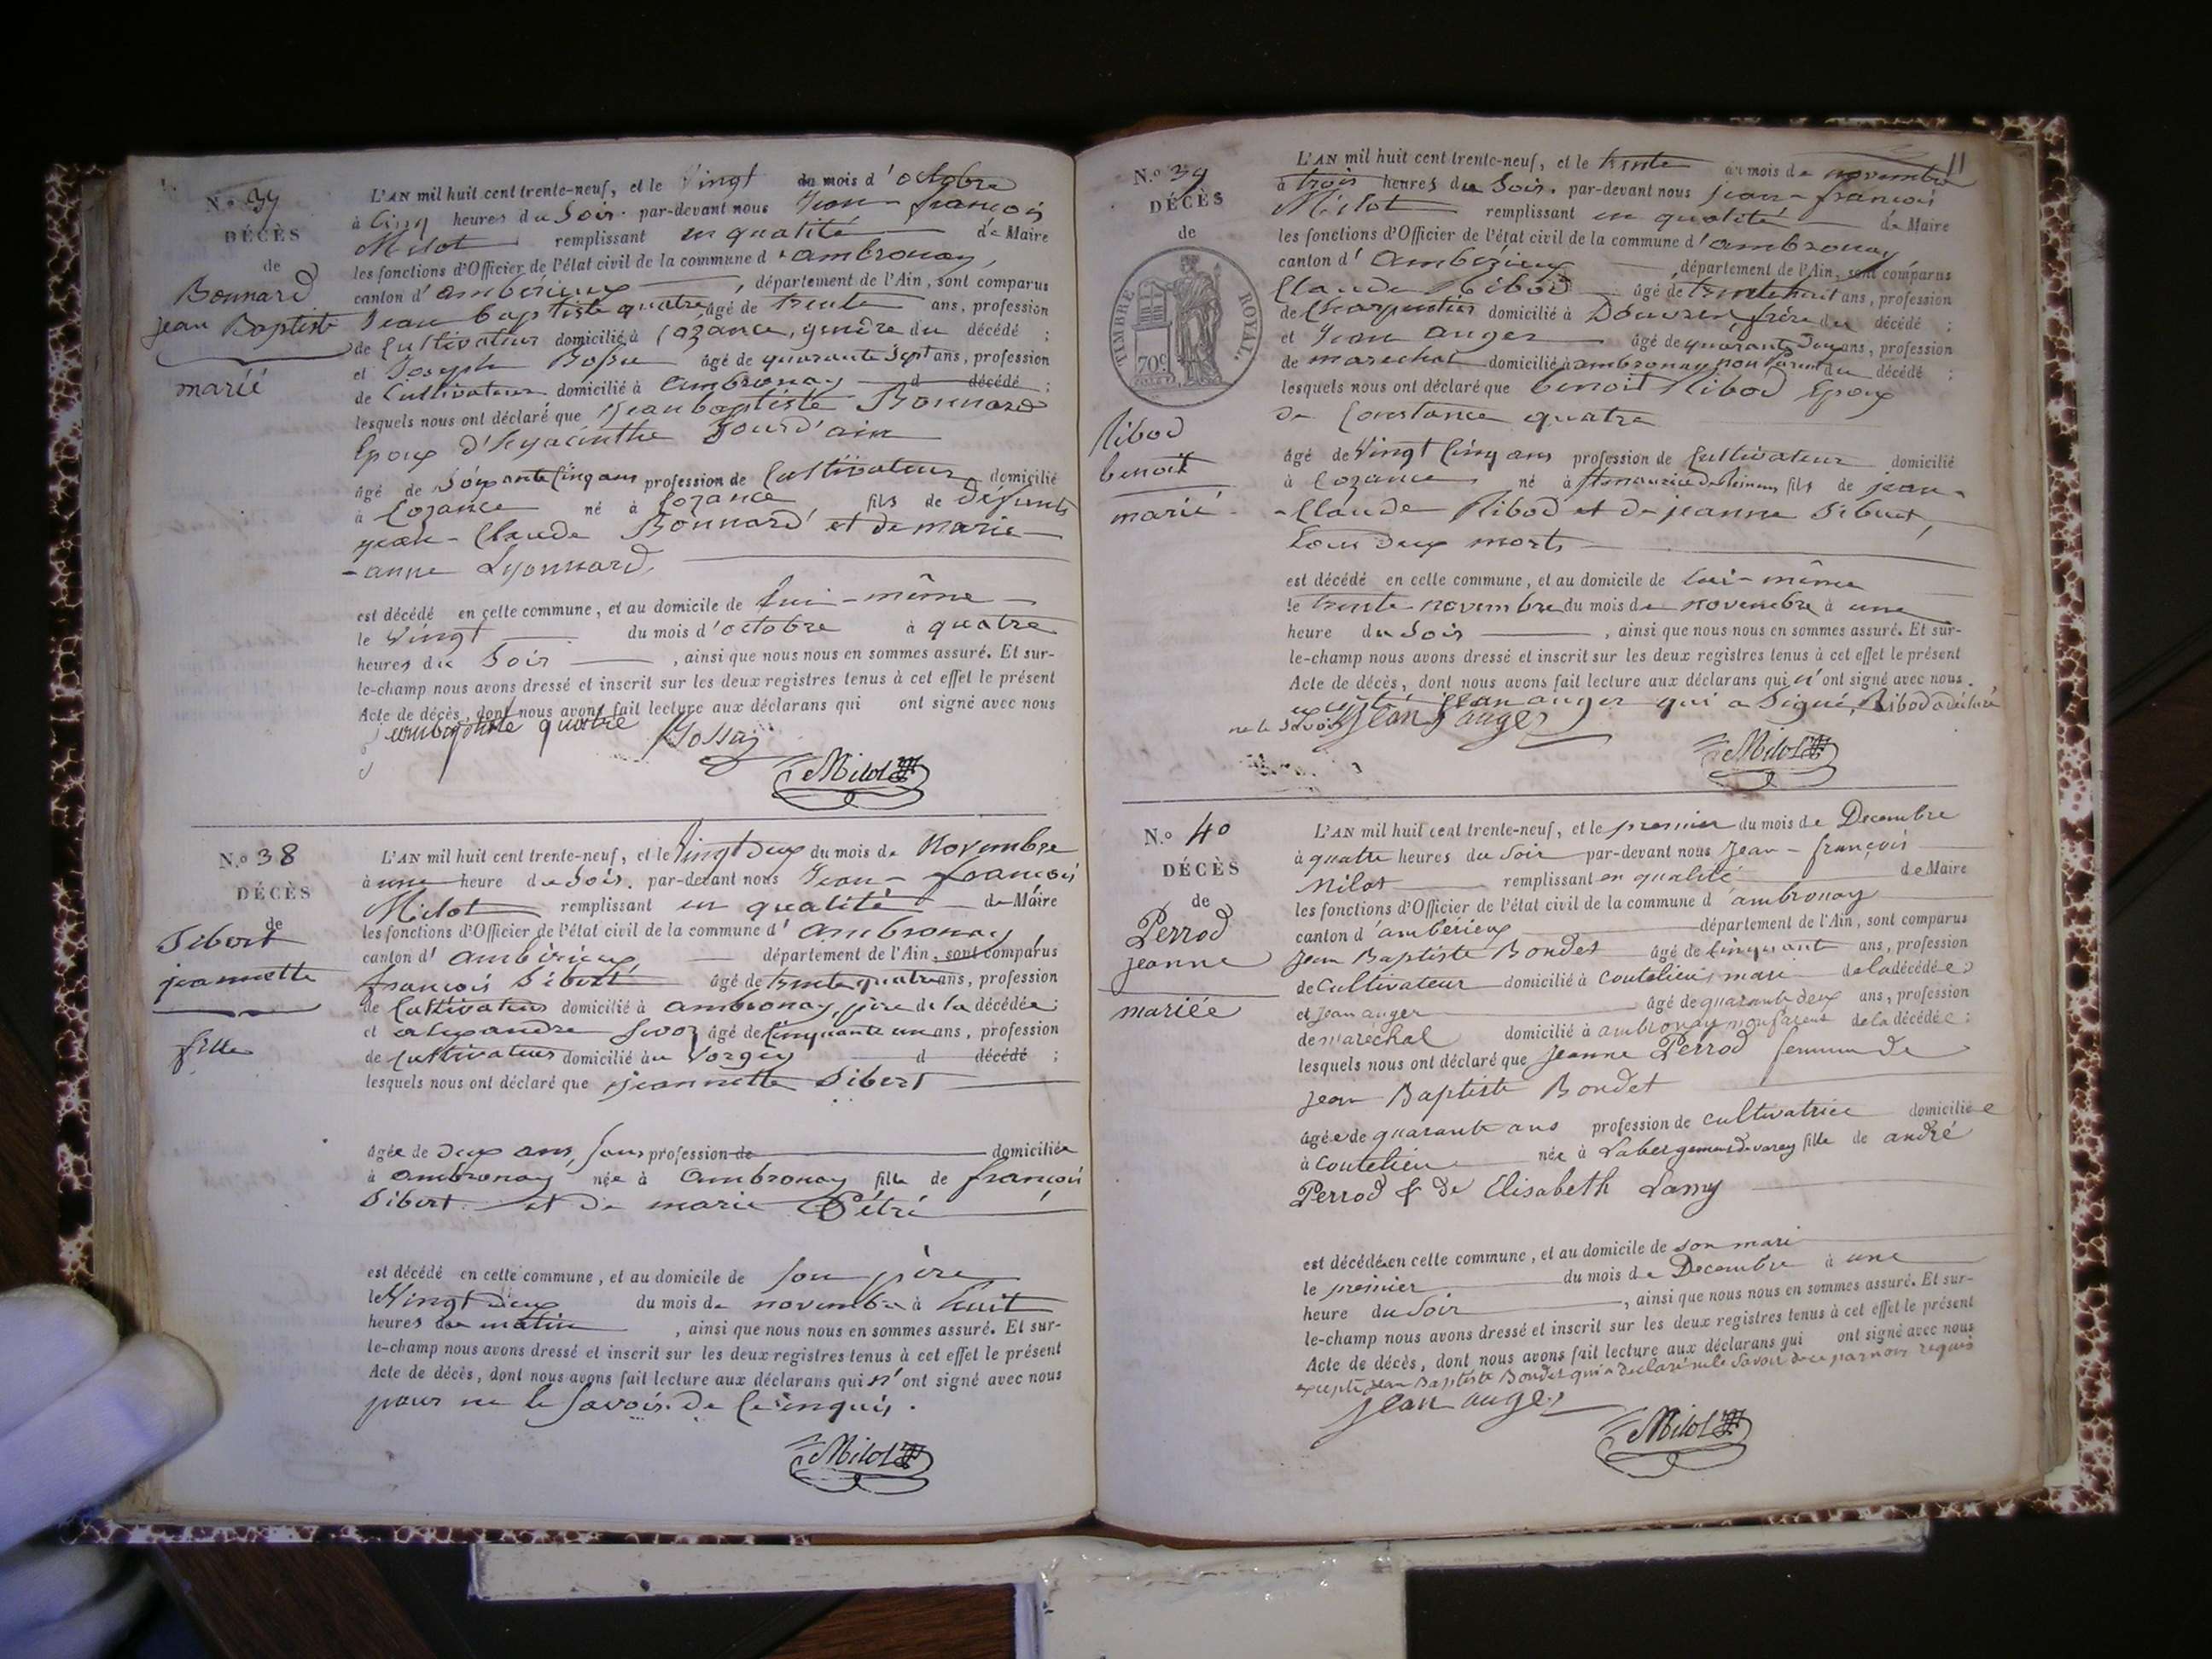 N.o 37
DÉCÈS
de
Bonnard
jean Baptiste
marié
L'AN mil huit cent trente-neuf, et le Vingt du mois d'octobre
à cinq heures du Soir. par-devant nous Jean-françois
Milot remplissant en qualité de Maire
les fonctions d'Officier de l'état civil de la commune d'ambronay,
canton d'amberieux, département de l'Ain, sont comparus
Jean baptiste quatre, âgé de trente ans, profession
de Cultivateur domicilié à Cozance, gendre du décédé;
et Joseph Bossu âgé de quarante Sept ans, profession
de Cultivateur domicilié à ambronay d décédé;
lesquels nous ont déclaré que Jean baptiste Bonnard
Epoux d'hyacinthe Jourd'ain
âgé de Soixante Cinq ans profession de Cultivateur domicilié
à Cozance né à Cozance, fils de defunts
jean-Claude Bonnard et de marie-
-anne Lyonnard,
est décédé en cette commune, et au domicile de lui-même
le Vingt du mois d'octobre à quatre
heures du Soir, ainsi que nous nous en sommes assuré. Et sur-
le-champ nous avons dressé et inscrit sur les deux registres tenus à cet effet le présent
Acte de décès, dont nous avons fait lecture aux déclarans qui ont signé avec nous
quatre
Milot
N.o 38
DÉCÈS
de
Sibert
jeannette
fille
L'AN mil huit cent trente-neuf, et le Vingt deux du mois de Novembre
à une heure du Soir. par-devant nous Jean-françois
Milot remplissant en qualité de Maire
les fonctions d'Officier de l'état civil de la commune d'ambronay,
canton d'ambérieux département de l'Ain, sont comparus
françois Sibert âgé de trente quatre ans, profession
de Cultivateur domicilié à ambronay, père de la décédée;
et alexandre âgé de Cinquante un ans, profession
de Cultivateur domicilié au d décédé;
lesquels nous ont déclaré que jeannette Sibert
âgée de deux ans, Sans profession de domiciliée
à ambronay née à ambronay fille de françois
Sibert et de marie Pétré
est décédé en cette commune, et au domicile de Son père
le Vingt deux du mois de novembre à huit
heures du matin, ainsi que nous nous en sommes assuré. Et sur-
le-champ nous avons dressé et inscrit sur les deux registres tenus à cet effet le présent
Acte de décès, dont nous avons fait lecture aux déclarans qui n'ont signé avec nous
pour ne le Savoir. De ce enquis.
Milot
11
N.o 39
DÉCÈS
de
TIMBRE ROYAL.
70c
Ribod
benoit
marié
L'AN mil huit cent trente-neuf, et le trente du mois de novembre
à trois heures du Soir. par-devant nous jean-françois
Milot remplissant en qualité de Maire
les fonctions d'Officier de l'état civil de la commune d'ambronay
canton d'amberieux, département de l'Ain, sont comparus
Claude Ribod âgé de trente huit ans, profession
de Charpentier domicilié à Douvres, frère du décédé;
et Jean auger âgé de quarante deux ans, profession
de marechal domicilié à ambronay non parent du décédé;
lesquels nous ont déclaré que benoit Ribod Epoux
de Constance quatre
âgé de Vingt Cinq ans profession de Cultivateur domicilié
à Cozance né à St maurice de Reimens fils de jean-
-Claude Ribod et de jeanne Sibuet,
tous deux morts
est décédé en cette commune, et au domicile de lui-même
le trente novembre du mois de novembre à une
heure du Soir, ainsi que nous nous en sommes assuré. Et sur-
le-champ nous avons dressé et inscrit sur les deux registres tenus à cet effet le présent
Acte de décès, dont nous avons fait lecture aux déclarans qui n'ont signé avec nous.
excepté jean auger qui a Signé, Ribod a déclaré
ne le Savoir Jean auger
Milot
N.o 40
DÉCÈS
de
Perrod
jeanne
mariée
L'AN mil huit cent trente-neuf, et le premier du mois de Decembre
à quatre heures du Soir par-devant nous Jean-françois
Milot remplissant en qualité de Maire
les fonctions d'Officier de l'état civil de la commune d'ambronay
canton d'ambérieux département de l'Ain, sont comparus
Jean Baptiste Bondet âgé de cinquante ans, profession
de Cultivateur domicilié à Coutelieu, mari de la décédée;
et Jean auger âgé de quarante deux ans, profession
de marechal domicilié à ambronay non parent de la décédée;
lesquels nous ont déclaré que Jeanne Perrod femme de
Jean Baptiste Bondet
âgée de quarante ans profession de cultivatrice domiciliée
à Coutelieu née à Labergement de varey fille de andré
Perrod & de Elisabeth Lamy
est décédée en cette commune, et au domicile de son mari
le premier du mois de Decembre à une
heure du Soir, ainsi que nous nous en sommes assuré. Et sur-
le-champ nous avons dressé et inscrit sur les deux registres tenus à cet effet le présent
Acte de décès, dont nous avons fait lecture aux déclarans qui ont signé avec nous
excepté Jean Baptiste Bondet qui a declaré ne le Savoir de ce par nous requis
Jean auger
Milot